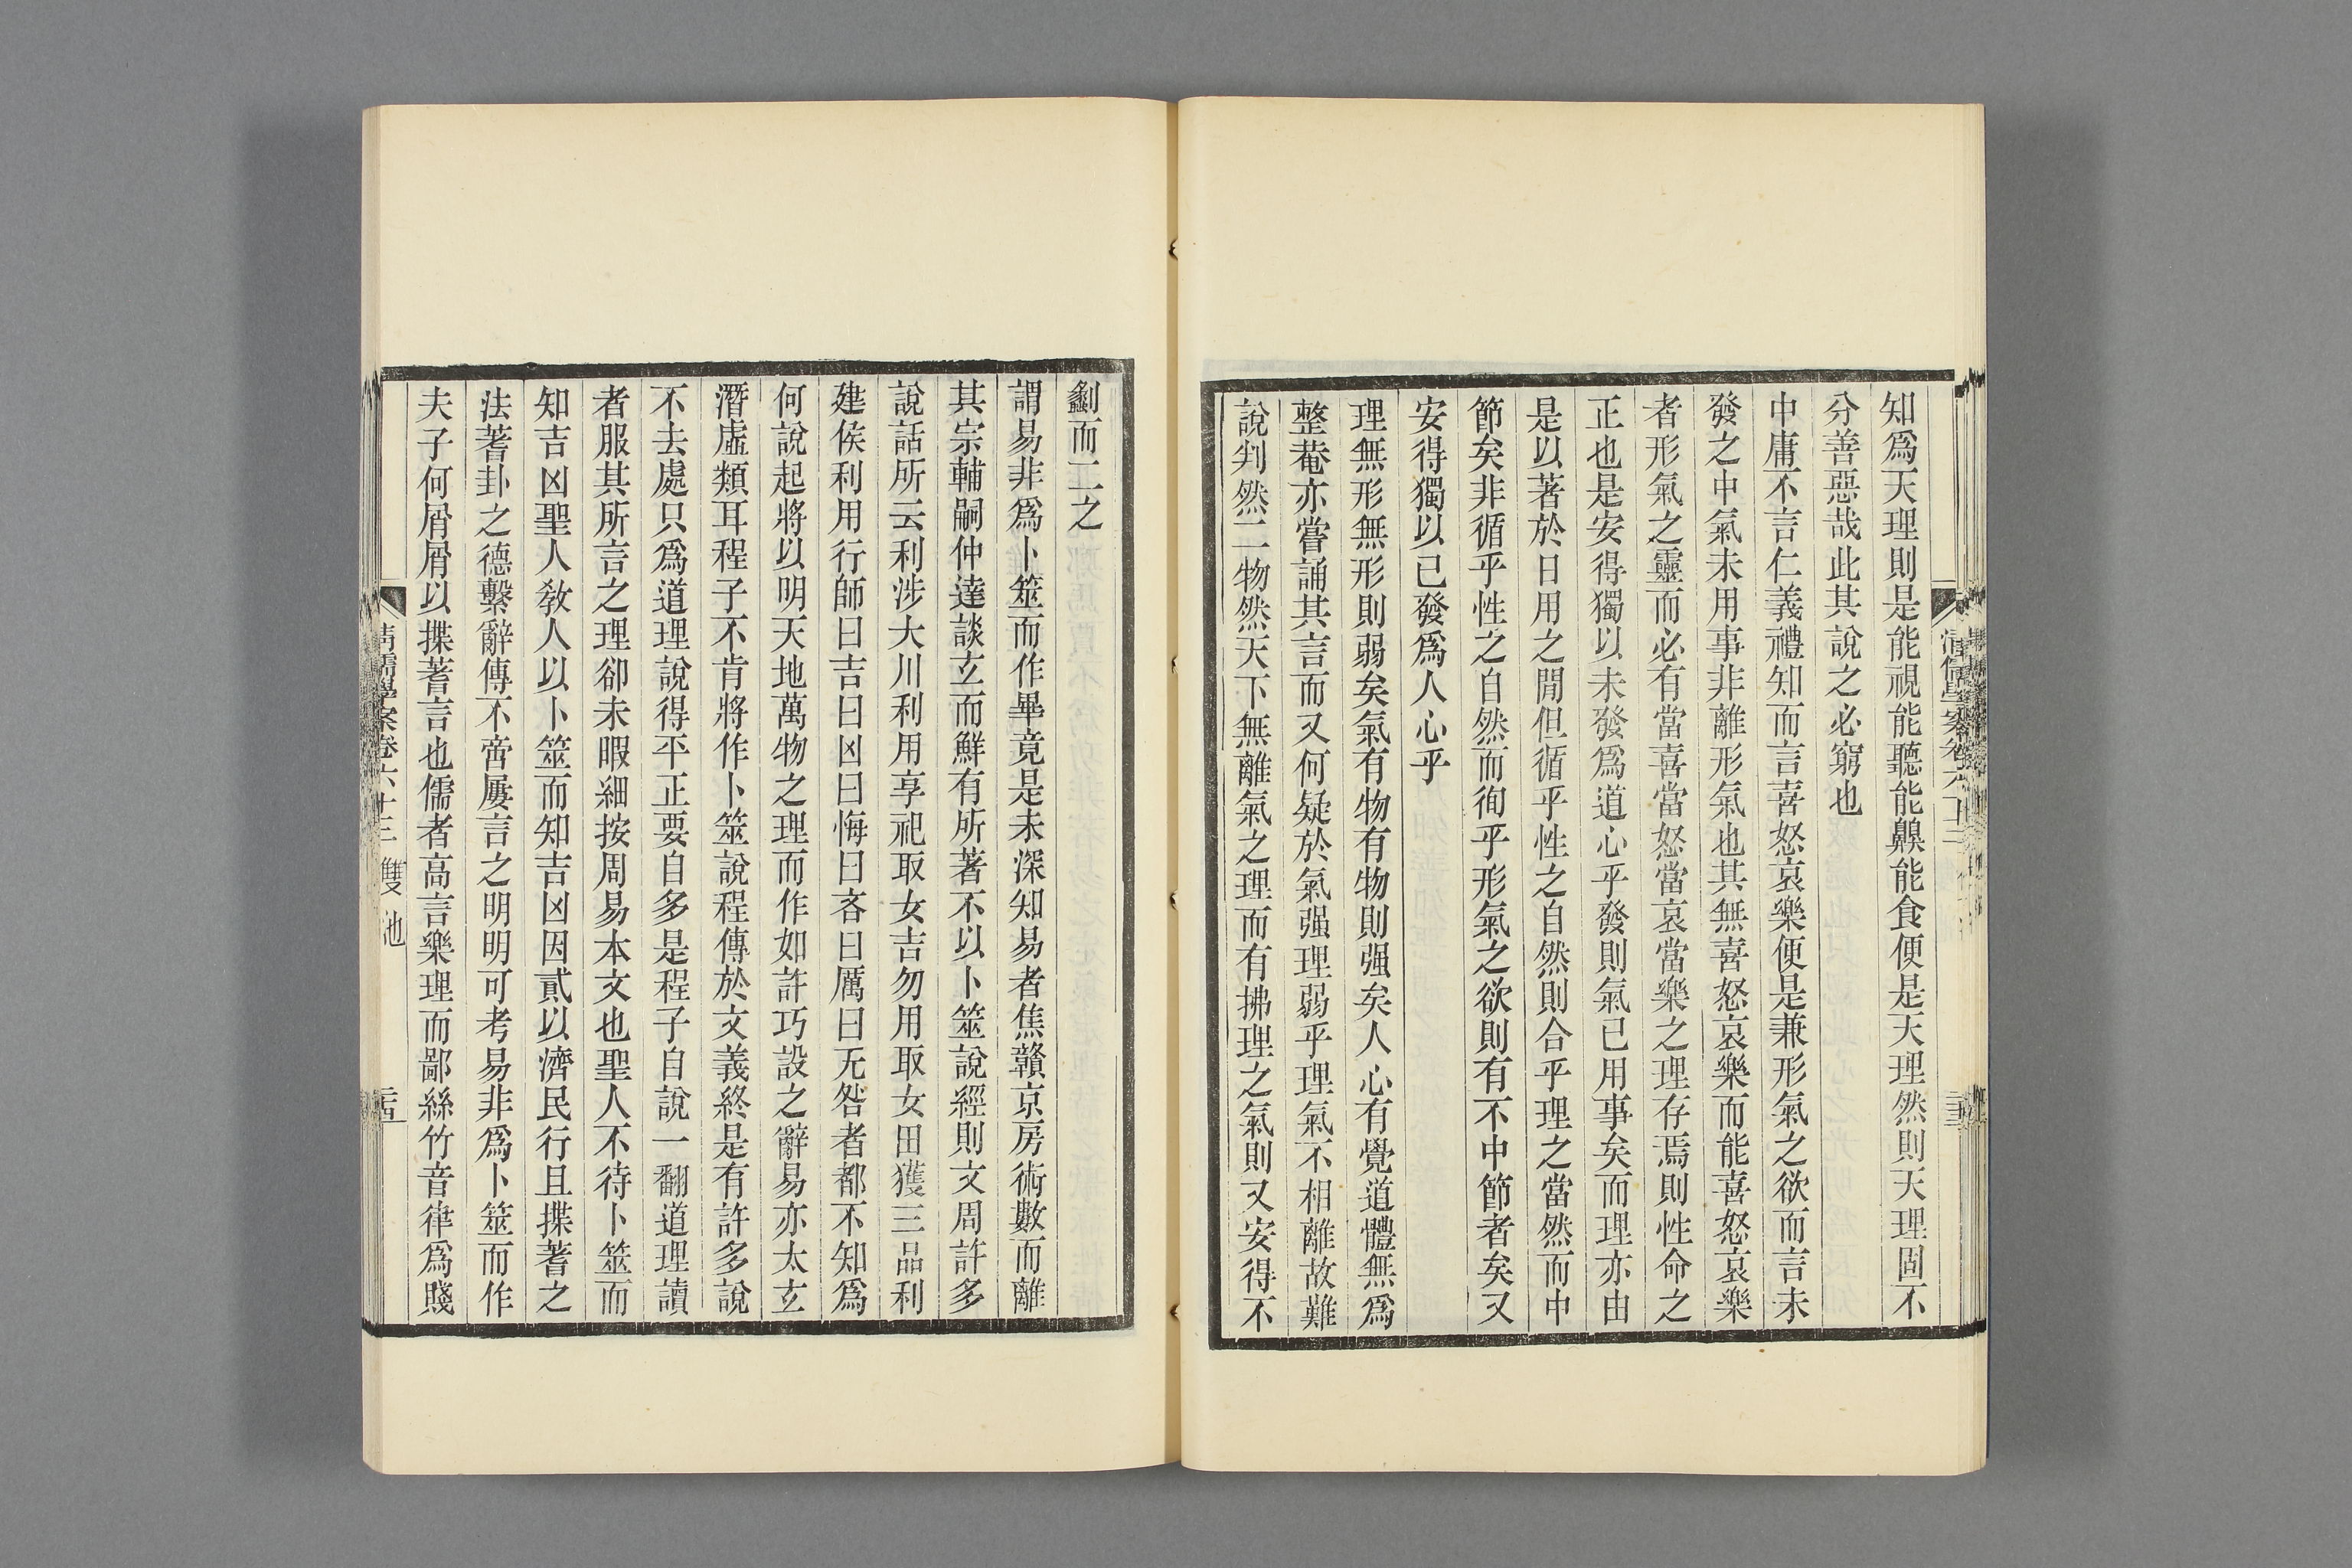 知爲天理則是能視能聽能齅能食便是天理然則天理固不
分善惡哉此其說之必窮也
中庸不言仁義禮知而言喜怒哀樂便是兼形氣之欲而言未
發之中氣未用事非離形氣也其無喜怒哀樂而能喜怒哀樂
者形氣之靈而必有當喜當怒當哀當樂之理存焉則性命之
正也是安得獨以未發爲道心乎發則氣已用事矣而理亦由
是以著於日用之閒但循乎性之自然則合乎理之當然而中
節矣非循乎性之自然而徇乎形氣之欲則有不中節者矣又
安得獨以已發爲人心乎
理無形無形則弱矣氣有物有物則强矣人心有覺道體無爲
整菴亦嘗誦其言而又何疑於氣强理弱乎理氣不相離故難
說判然二物然天下無離氣之理而有拂理之氣則又安得不
劙而二之
謂易非爲卜筮而作畢竟是未深知易者焦贛京房術數而離
其宗輔嗣仲達談玄而鮮有所著不以卜筮說經則文周許多
說話所云利涉大川利用享祀取女吉勿用取女田獲三品利
建侯利用行師曰吉曰凶曰悔曰吝曰厲曰无咎者都不知爲
何說起將以明天地萬物之理而作如許巧設之辭易亦太玄
潛虛類耳程子不肯將作卜筮說程傳於文義終是有許多說
不去處只爲道理說得平正要自多是程子自說一翻道理讀
者服其所言之理卻未暇細按周易本文也聖人不待卜筮而
知吉凶聖人教人以卜筮而知吉凶因貳以濟民行且揲蓍之
法蓍卦之德繫辭傳不啻屢言之明明可考易非爲卜筮而作
夫子何屑屑以揲蓍言也儒者高言樂理而鄙絲竹音律爲賤
清儒學案卷六十三 雙池